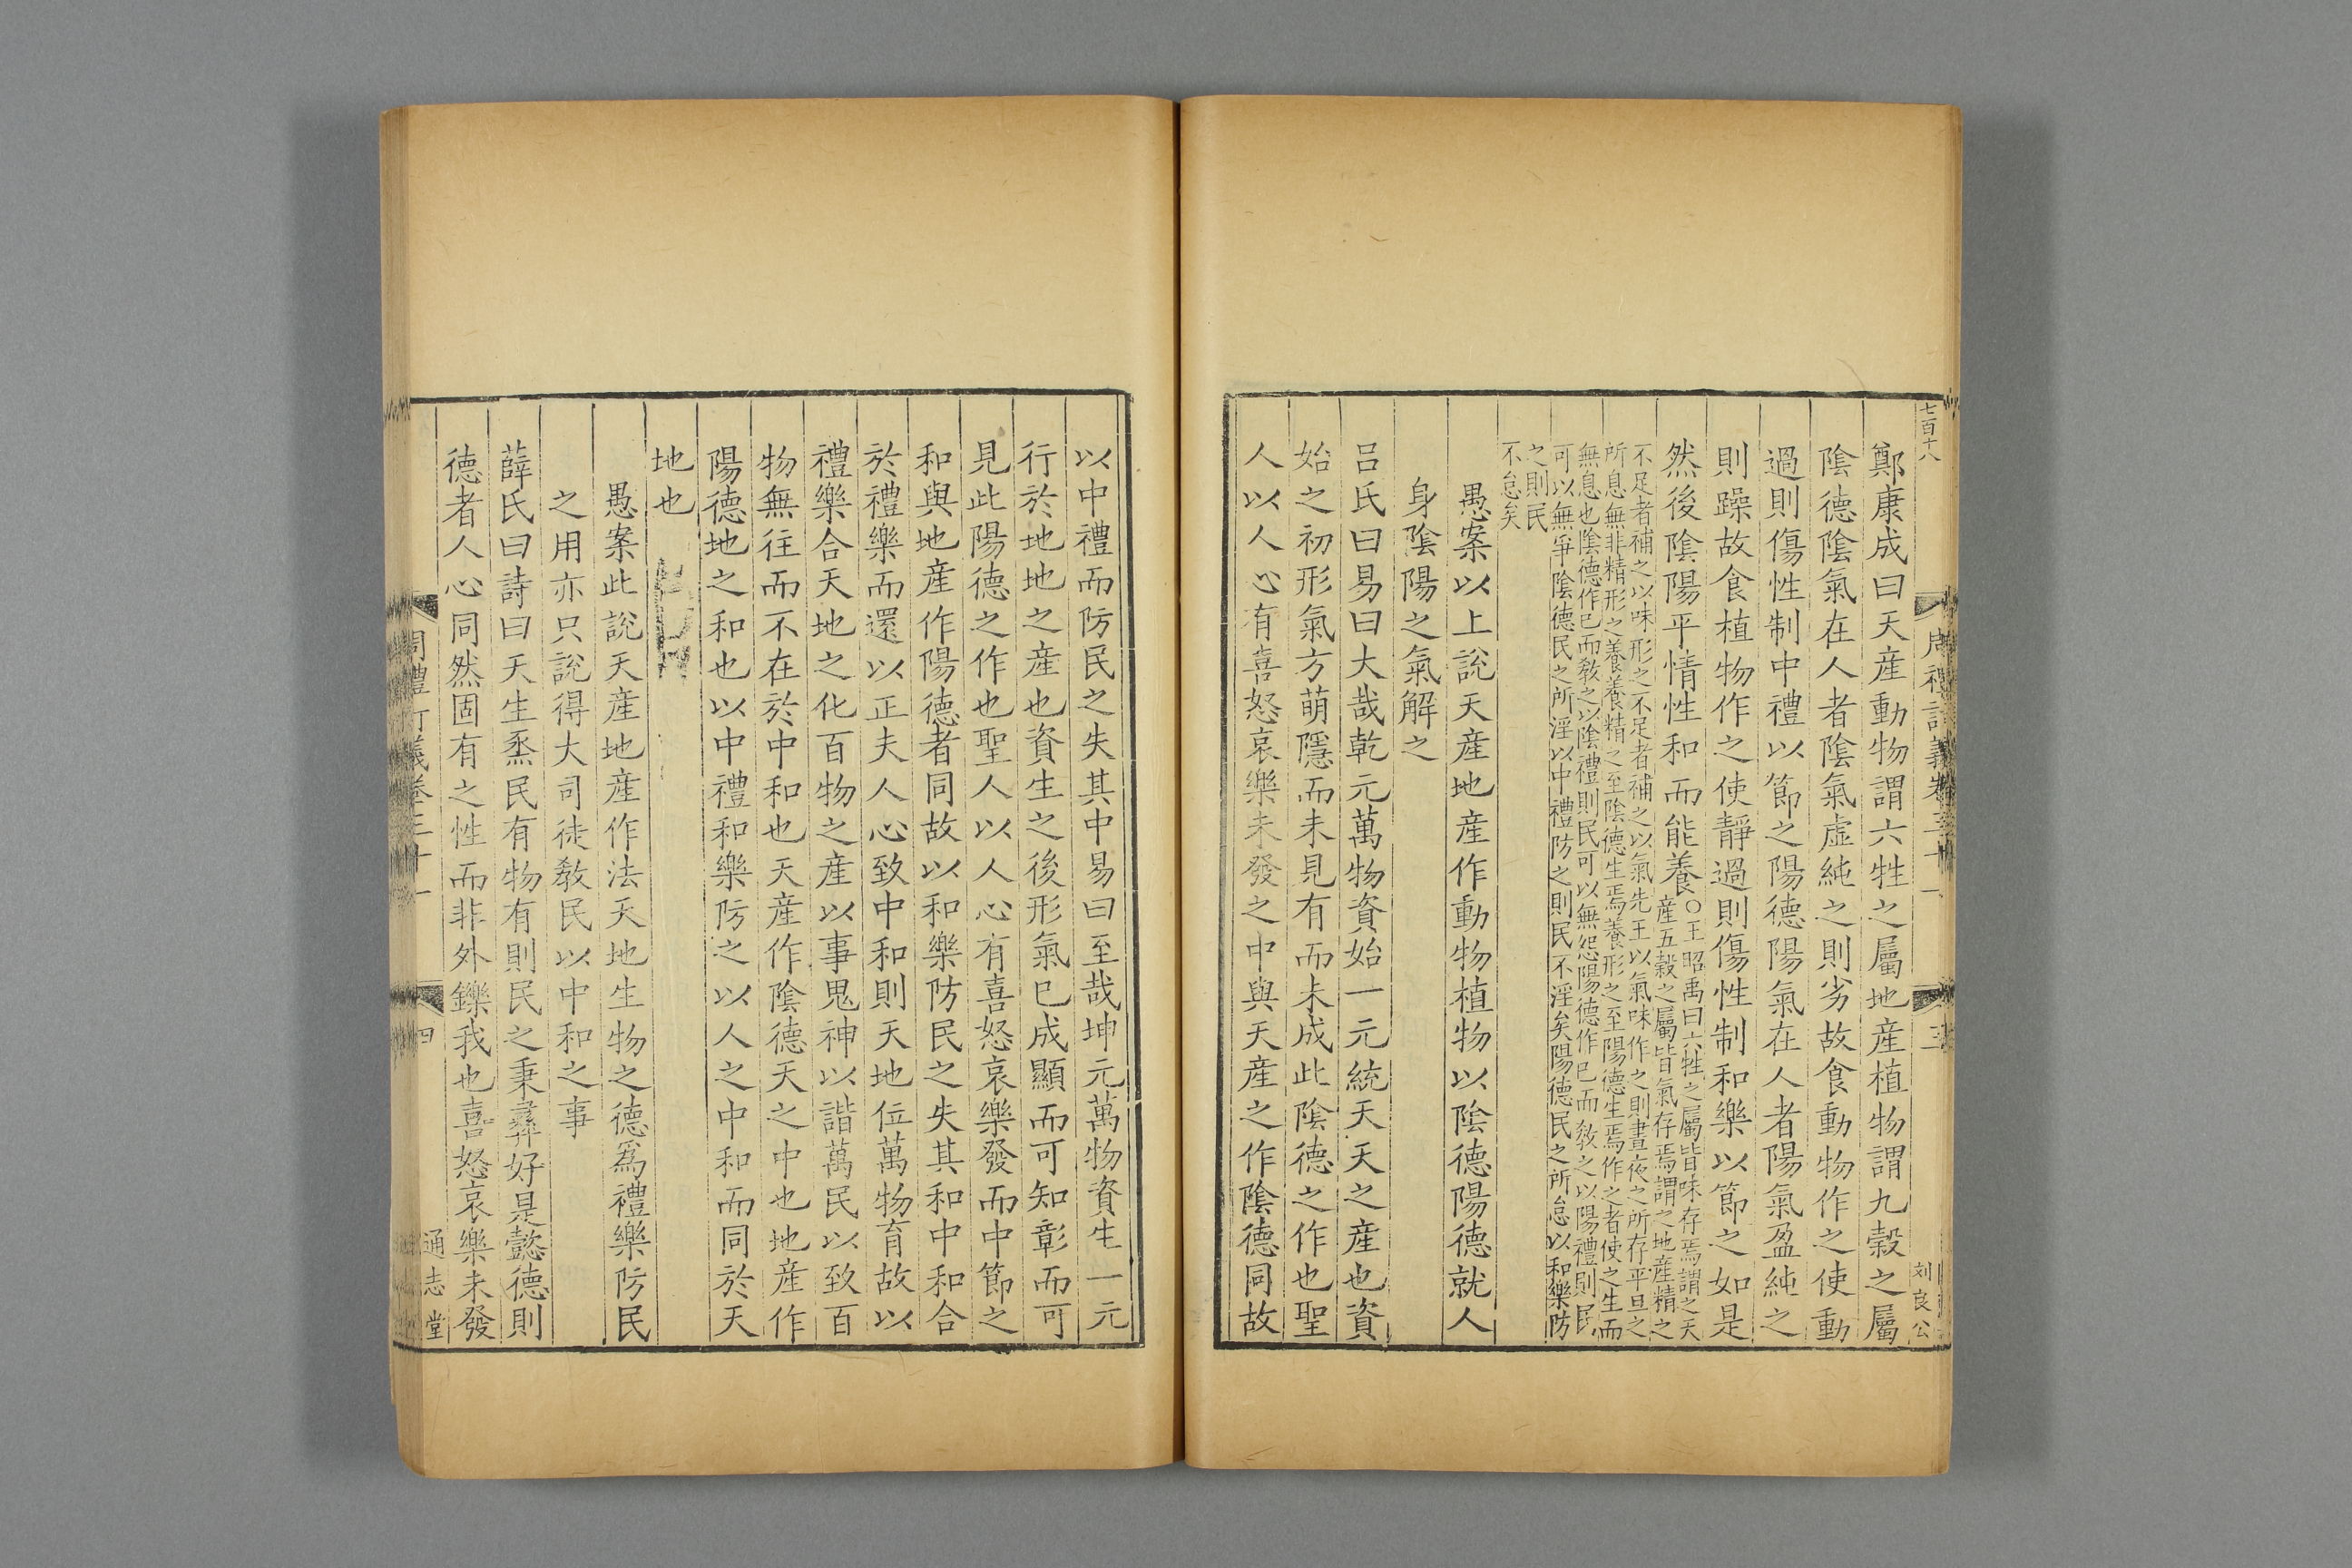 七百十八
周禮訂義卷三十一
三
刘良公
鄭康成曰天産動物謂六牲之屬地産植物謂九穀之屬
陰德陰氣在人者陰氣虛純之則劣故食動物作之使動
過則傷性制中禮以節之陽德陽氣在人者陽氣盈純之
則躁故食植物作之使靜過則傷性制和樂以節之如是
然後陰陽平情性和而能養
○王昭禹曰六牲之屬皆味存焉謂之天
産五穀之屬皆氣存焉謂之地産精之
不足者補之以味形之不足者補之以氣先王以氣味作之則晝夜之所存平旦之
所息無非精形之養養精之至陰德生焉養形之至陽德生焉作之者使之生而
無息也陰德作已而敎之以陰禮則民可以無怨陽德作已而敎之以陽禮則民
可以無爭陰德民之所淫以中禮防之則民不淫矣陽德民之所怠以和樂防
之則民
不怠矣
愚案以上說天産地産作動物植物以陰德陽德就人
身陰陽之氣解之
呂氏曰易曰大哉乾元萬物資始一元統天天之産也資
始之初形氣方萌隱而未見有而未成此陰德之作也聖
人以人心有喜怒哀樂未發之中與天産之作陰德同故
以中禮而防民之失其中易曰至哉坤元萬物資生一元
行於地地之産也資生之後形氣已成顯而可知彰而可
見此陽德之作也聖人以人心有喜怒哀樂發而中節之
和與地産作陽德者同故以和樂防民之失其和中和合
於禮樂而還以正夫人心致中和則天地位萬物育故以
禮樂合天地之化百物之産以事鬼神以諧萬民以致百
物無往而不在於中和也天産作陰德天之中也地産作
陽德地之和也以中禮和樂防之以人之中和而同於天
地也
愚案此說天産地産作法天地生物之德爲禮樂防民
之用亦只說得大司徒敎民以中和之事
薛氏曰詩曰天生烝民有物有則民之秉彝好是懿德則
德者人心同然固有之性而非外鑠我也喜怒哀樂未發
周禮訂義卷三十一
四
通志堂